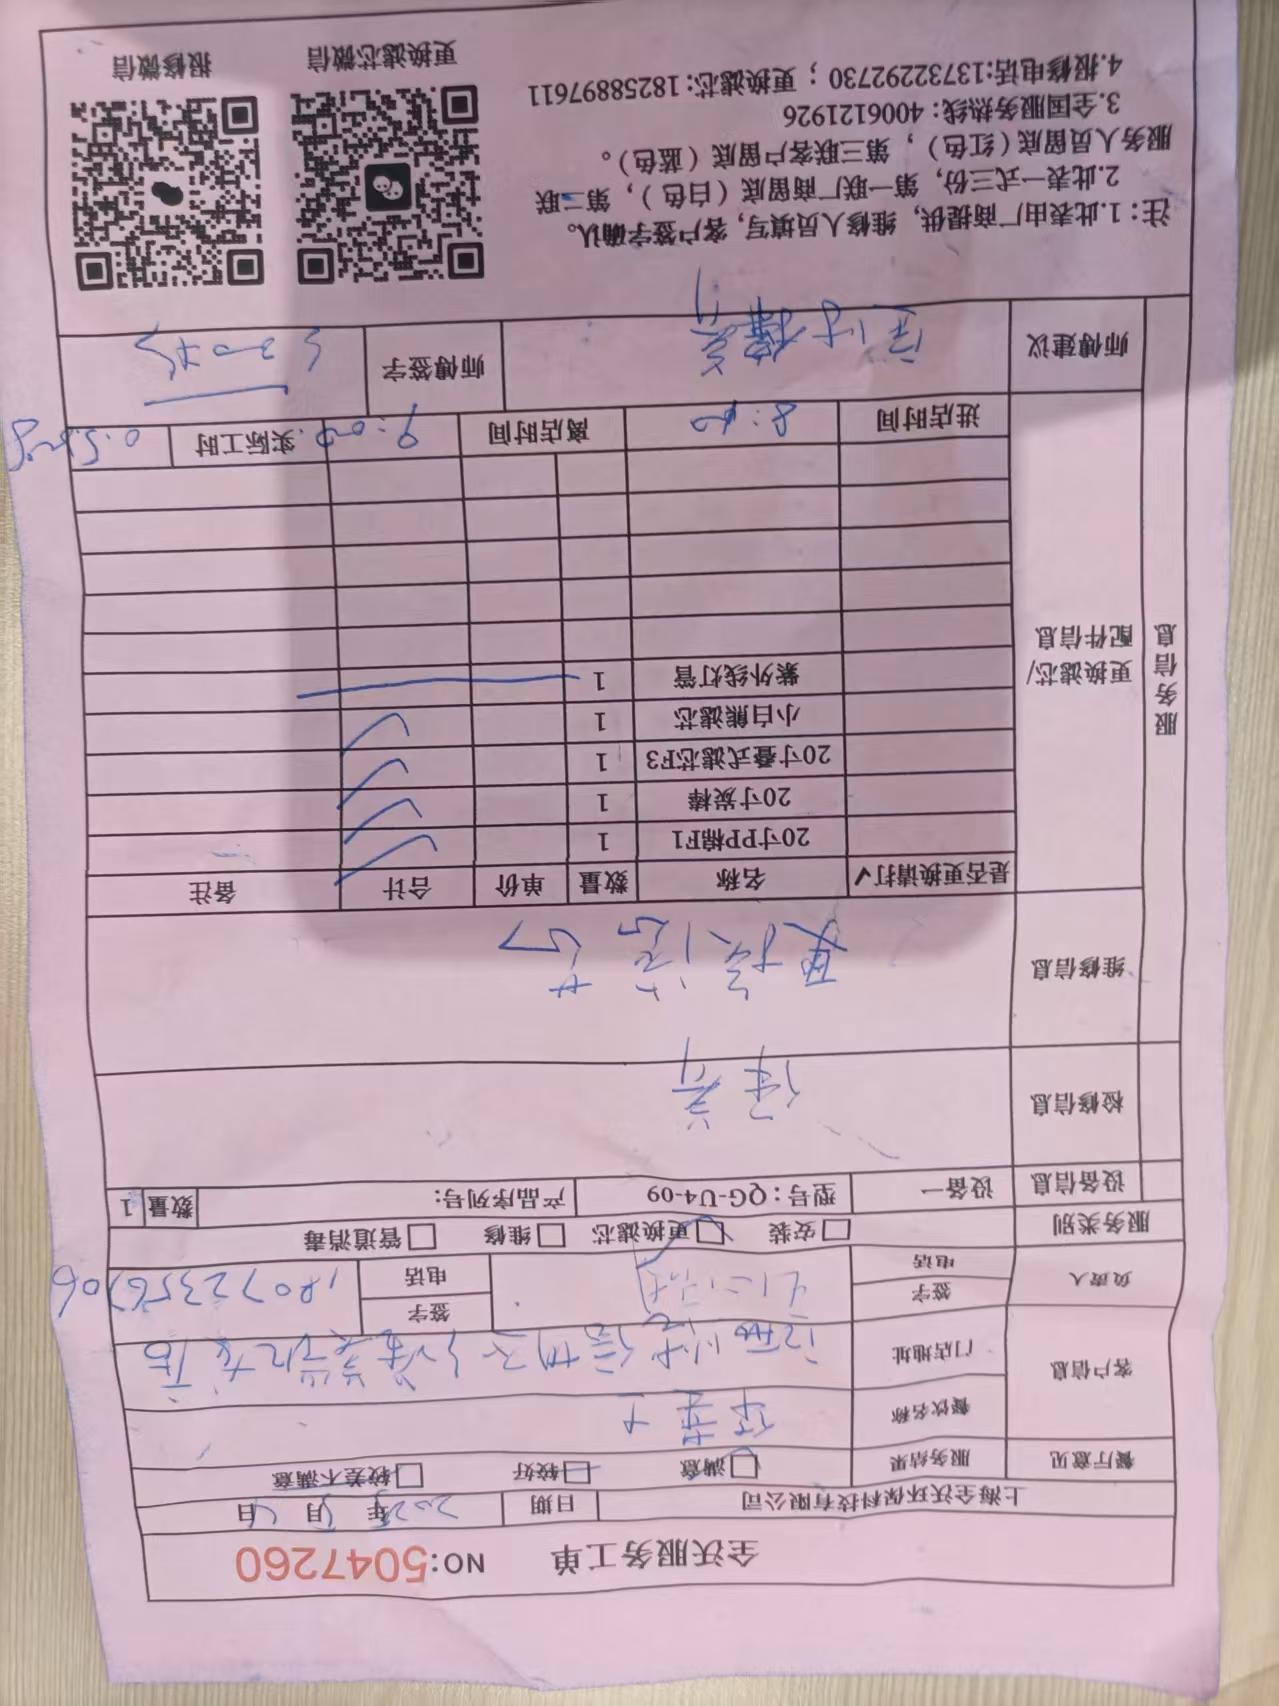 全沃服务工单 NO:5047260
上海全沃环保科技有限公司 日期 年 月 日
餐厅意见 服务结果 满意 较好 较差不满意
客户信息 餐饮名称
门店地址
负责人 签字 签字
电话 电话 18072356706
服务类别 安装 更换滤芯 维修 管道消毒
设备信息 设备一 型号：QG-U4-09 产品序列号： 数量 1
检修信息 保养
服务信息
维修信息 更换滤芯
更换滤芯/配件信息
是否更换请打✓ 名称 数量 单价 合计 备注
20寸PP棉F1 1 ✓
20寸炭棒 1 ✓
20寸叠式滤芯F3 1 ✓
小白熊滤芯 1 ✓
紫外线灯管 1
进店时间 8:40 离店时间 9:00 实际工时
师傅建议 定时保养 师傅签字
注：1.此表由厂商提供，维修人员填写，客户签字确认。
2.此表一式三份，第一联厂商留底（白色），第二联
服务人员留底（红色），第三联客户留底（蓝色）。
3.全国服务热线：4006121926
4.报修电话:13732292730；更换滤芯：18258897611
更换滤芯微信 报修微信